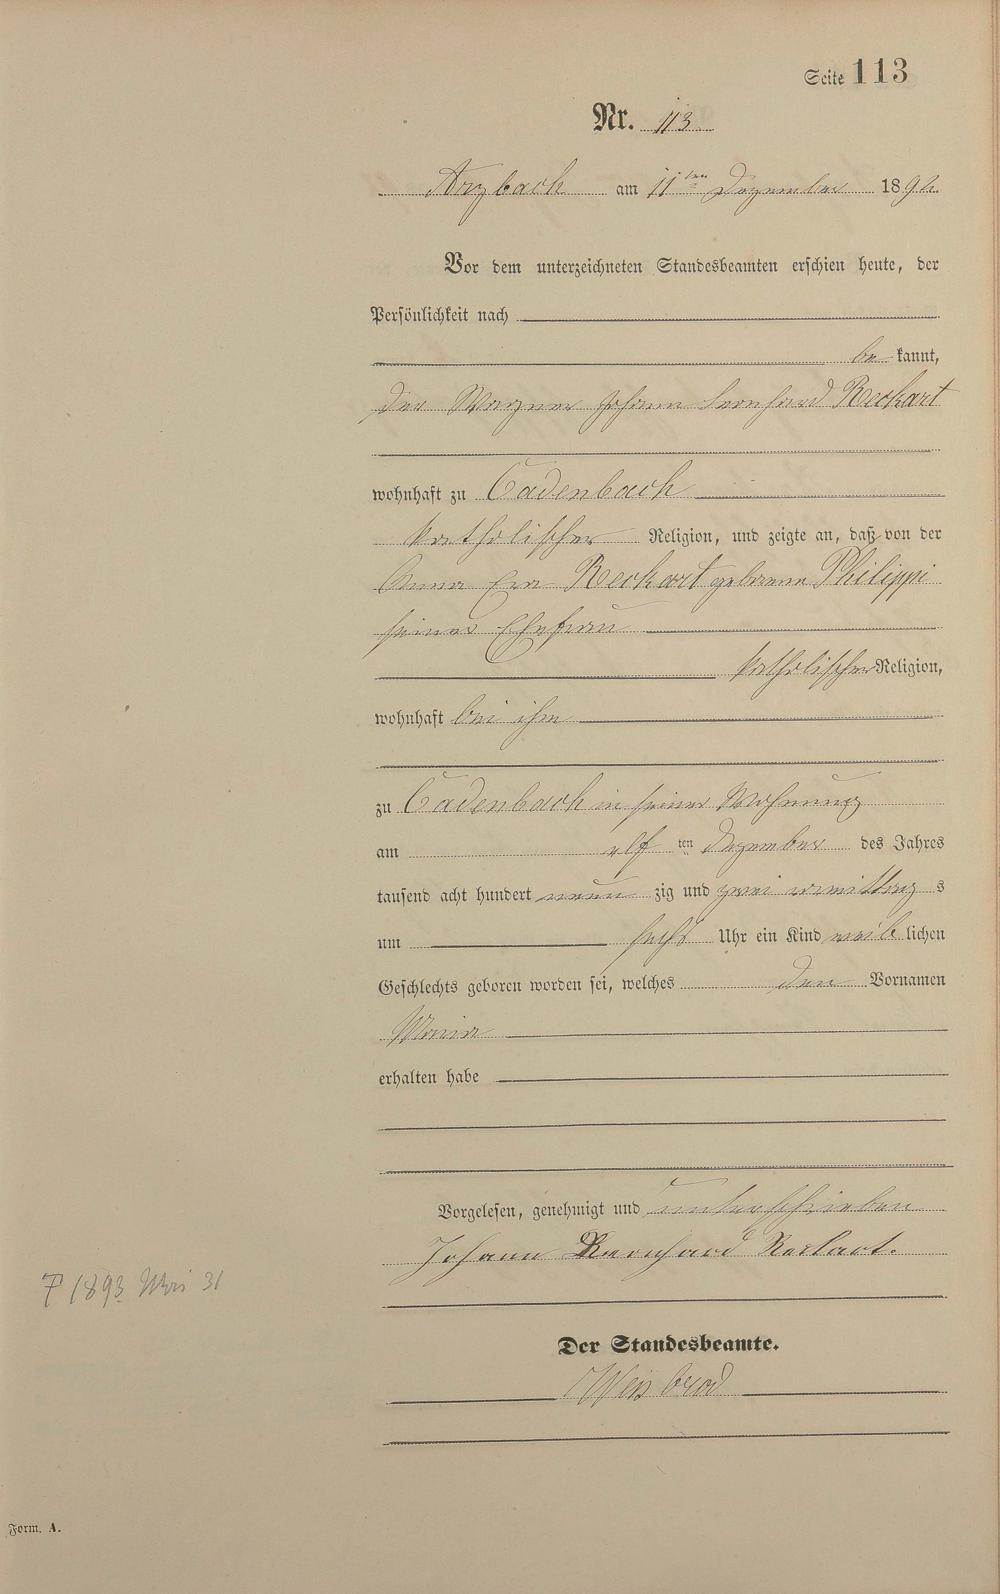 Seite 113
Nr. 113
Arzbach am 11ten Dezember 1892
Vor dem unterzeichneten Standesbeamten erschien heute, der
Persönlichkeit nach
be kannt,
der Wagner Johann Bernhard Reckart
wohnhaft zu Cadenbach
katholischer Religion, und zeigte an, daß von der
Anna Eva Reckart geborene Philippi
seiner Ehefrau
katholischer Religion,
wohnhaft bei ihm
zu Cadenbach in seiner Wohnung
am elf ten Dezember des Jahres
tausend acht hundert neun zig und zwei vormittag s
um sechs Uhr ein Kind weib lichen
Geschlechts geboren worden sei, welches den Vornamen
Maria
erhalten habe
Vorgelesen, genehmigt und unterschrieben
Johann Bernhard Reckart.
† 1893 Mai 31
Der Standesbeamte.
Weisbrod
Form. A.